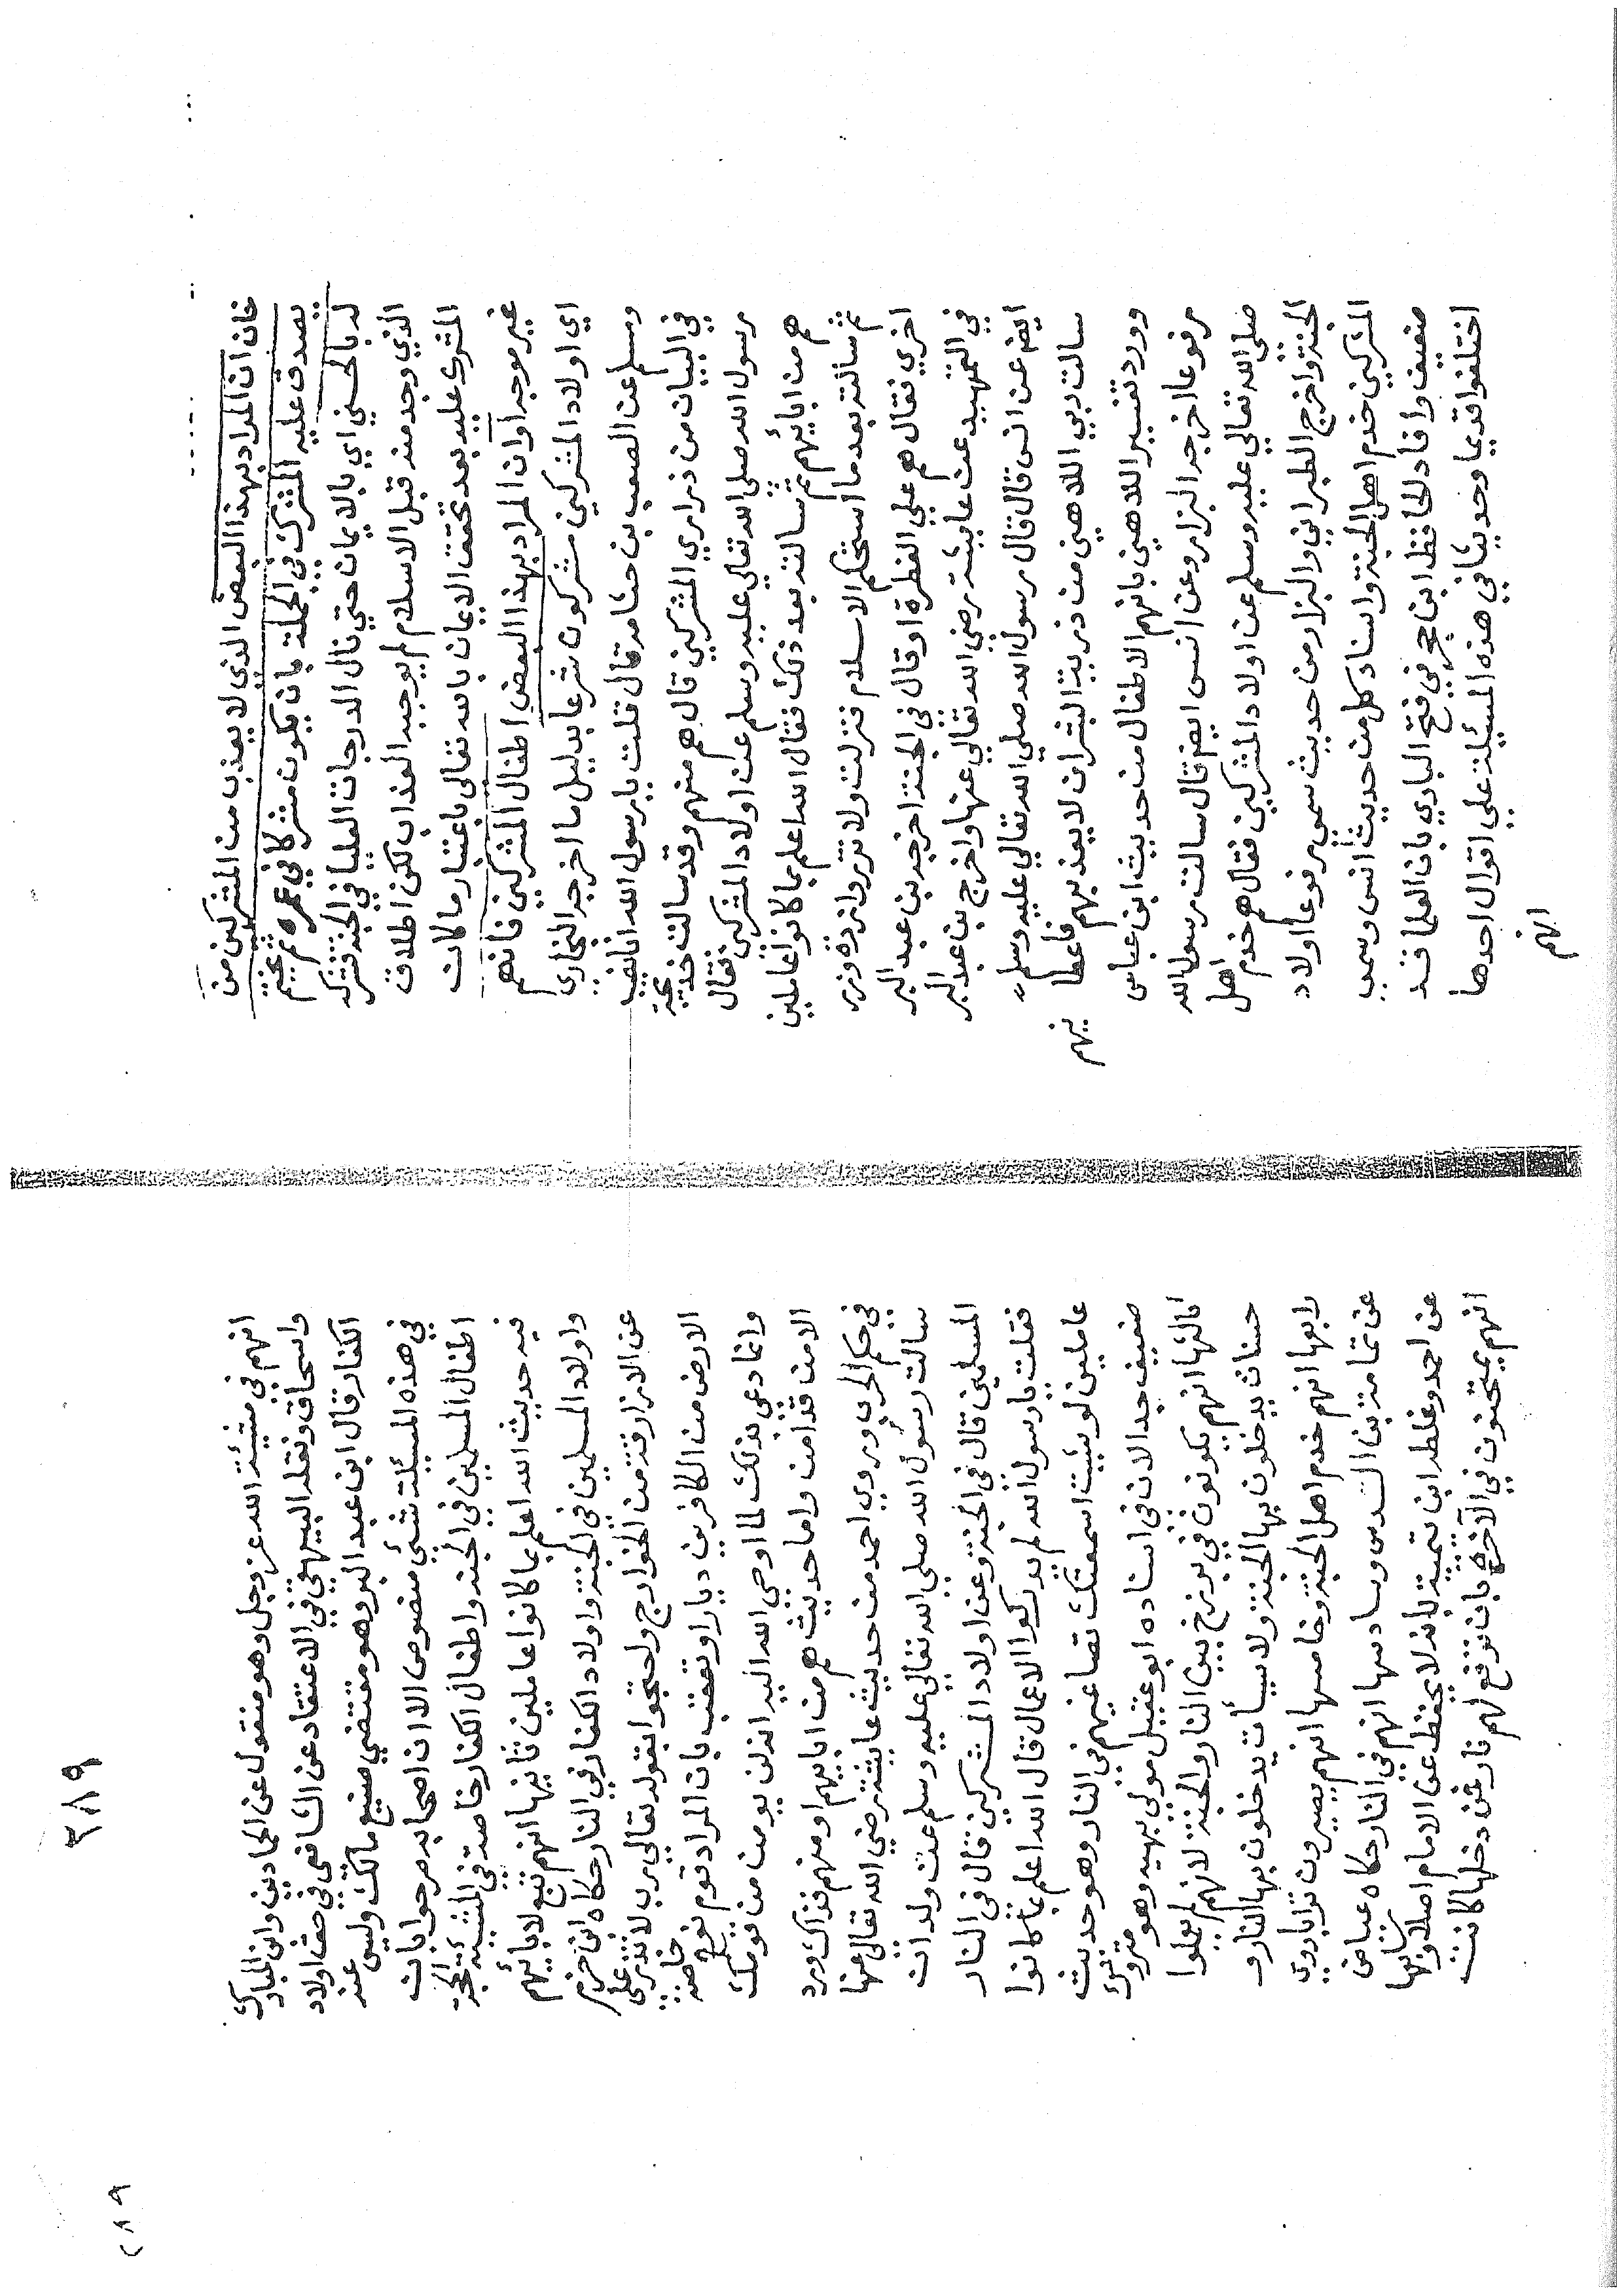 فان ان المراد بهذا البعض الذي لا يعذب من المشركين من
يصدق عليه المشرك في الجملة بان يكون مشركا في عمره ثم يختم
له بالحسني اي بالايمان حتي نال الدرجات العليا في الجنة فشركه
الذي وجد منه قبل الاسلام لم يوجب العذاب لكن اطلاق
المشرك عليه بعد تحقق الايمان بالله تعالى باعتبار ما كان
غير موجه اوان المراد بهذا البعض اطفال المشركين فانهم
اي اولاد المشركين مشركون شرعا بدليل ما اخرجه البخاري
ومسلم عن الصعب بن حثامة قال قلت يا رسول الله انا نصيب
في البيات من ذراري المشركين قال هم منهم وقد سالت خديجة
رسول الله صلى الله تعالى عليه وسلم عن اولاد المشركين فقال
هم من ابايهم ثم سالته بعد ذلك فقال الله اعلم بما كانوا عاملين
ثم سالته بعد ما استحكم الاسلام فنزلت ولا تزر وازرة وزر
اخري فقال هم علي الفطرة او قال في الجنة اخرجه بن عبد البر
في التمهيد عن عايشة رضي الله تعالي عنها واخرج بن عبد البر
ايضا عن انس قال قال رسول الله صلي الله تعالي عليه وسلم
سالت ربي اللاهين من ذرية البشر ان لا يعذبهم فاعطا نيهم
وورد تفسير اللاهين بانهم الاطفال من حديث ابن عباس
مرفوعا اخرجه البزار وعن انس ايضا قال سالت رسول الله
صلي الله تعالي عليه وسلم عن اولاد المشركين فقال هم خدم اهل
الجنة واخرج الطبراني والبزار من حديث سمرة مرفوعا اولاد
المشركين خدم اهل الجنة واسناد كل من حديث انس وسمرة
ضعيف وافاد الحافظ ابن حجر في فتح الباري بان العلما قد
اختلفوا قديما وحديثا في هذه المسيلة علي اقوال احدها
انهم
٣٨٩
انهم في مشيئة الله عز وجل وهو منقول عن الحمادين وابن المبارك
واسحاق ونقله البيهقي في الاعتقاد عن الشافعي في حق اولاد
الكفار قال ابن عبد البر وهو مقتضي صنيع مالك وليس عنه
في هذه المسيلة شئ منصوص الا ان اصحابه صرحوا بان
اطفال المسلمين في الجنة واطفال الكفار خاصة في المشيئة والحجة
فيه حديث الله اعلم بما كانوا عاملين ثانيها انهم تبع لابائهم
واولاد المسلمين في الجنة واولاد الكفار في النار حكاه ابن حزم
عن الازارقة من الخوارج واحتجوا بقوله تعالي رب لا تذر علي
الارض من الكافرين ديارا وتعقب بان المراد قوم نوح خاصة
وانما دعي بذلك لما اوحي الله اليه انه لن يومن من قومك
الا من قد امن واما حديث هم من ابايهم او منهم فذاك ورد
في حكم الحربي وروي احمد من حديث عايشة رضي الله تعالي عنها
سالت رسول الله صلي الله تعالي عليه وسلم عن ولدان
المسلمين قال في الجنة وعن اولاد المشركين قال في النار
فقلت يا رسول الله لم يدركوا الاعمال قال الله اعلم بما كانوا
عاملين لو شئت اسمعتك تضاغيهم في النار وهو حديث
ضعيف جدا لان في اسناده ابو عقيل مولي بهية وهو متروك
ثالثها انهم يكونون في برزخ بين النار والجنة لانهم لم يعملوا
حسنات يدخلون بها الجنة ولا سيأت يدخلون بها النار و
رابعها انهم خدم اهل الجنة وخامسها انهم يصيرون ترابا روي
عن ثمامة بن اشرس وسادسها انهم في النار حكاه عياض
عن احمد وغلطه ابن تيمية بانه لا يحفظ عن الامام اصلا وسابعها
انهم يمتحنون في الآخرة بان ترفع لهم نار فمن دخلها كانت
٢٨٩